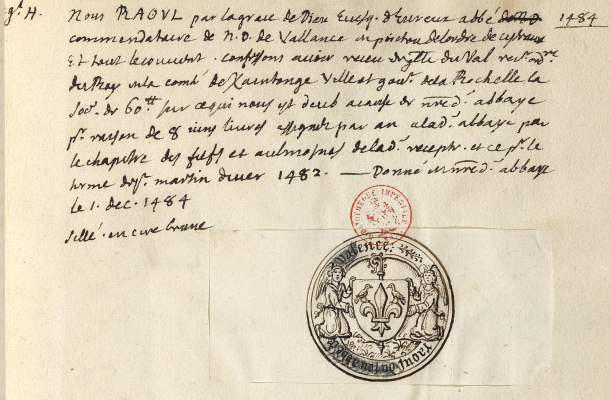 H. Nous RAOUL par la grace de Dieu Evesq. d'Evreux abbé 1484
commendataire de N. D. de Vallance en poictou de l'ordre de cysteaux
Et tout le couvent. confessons avoir receu du Val rec. ord.re
du Roy en la comté de Xaintonge Ville et gouv. de la Rochelle la
so.e de 60 tt sur ce qui nous est deub a cause de nred. abbaye
p. raison de 8 livres assignée par an a lad. abbaye par
le chapitre des fiefs et aulmosnes de lad. recepte. et ce p. le
terme de St. martin dhiver 1482. — Donné en nred. abbaye
le 1. dec. 1484
sillé. en cire brune
BIBLIOTHEQUE IMPÉRIALE
valence.
raoul